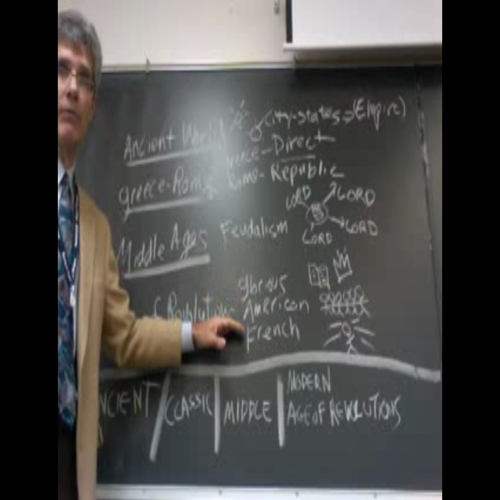 Ancient World city-states=(Empire)
Greece-Direct
Greece-Rome Rome-Republic
LORD LORD
Middle Ages Feudalism LORD
LORD
Glorious
Revolution American
French
ANCIENT CLASSIC MIDDLE MODERN
AGE OF REVOLUTIONS